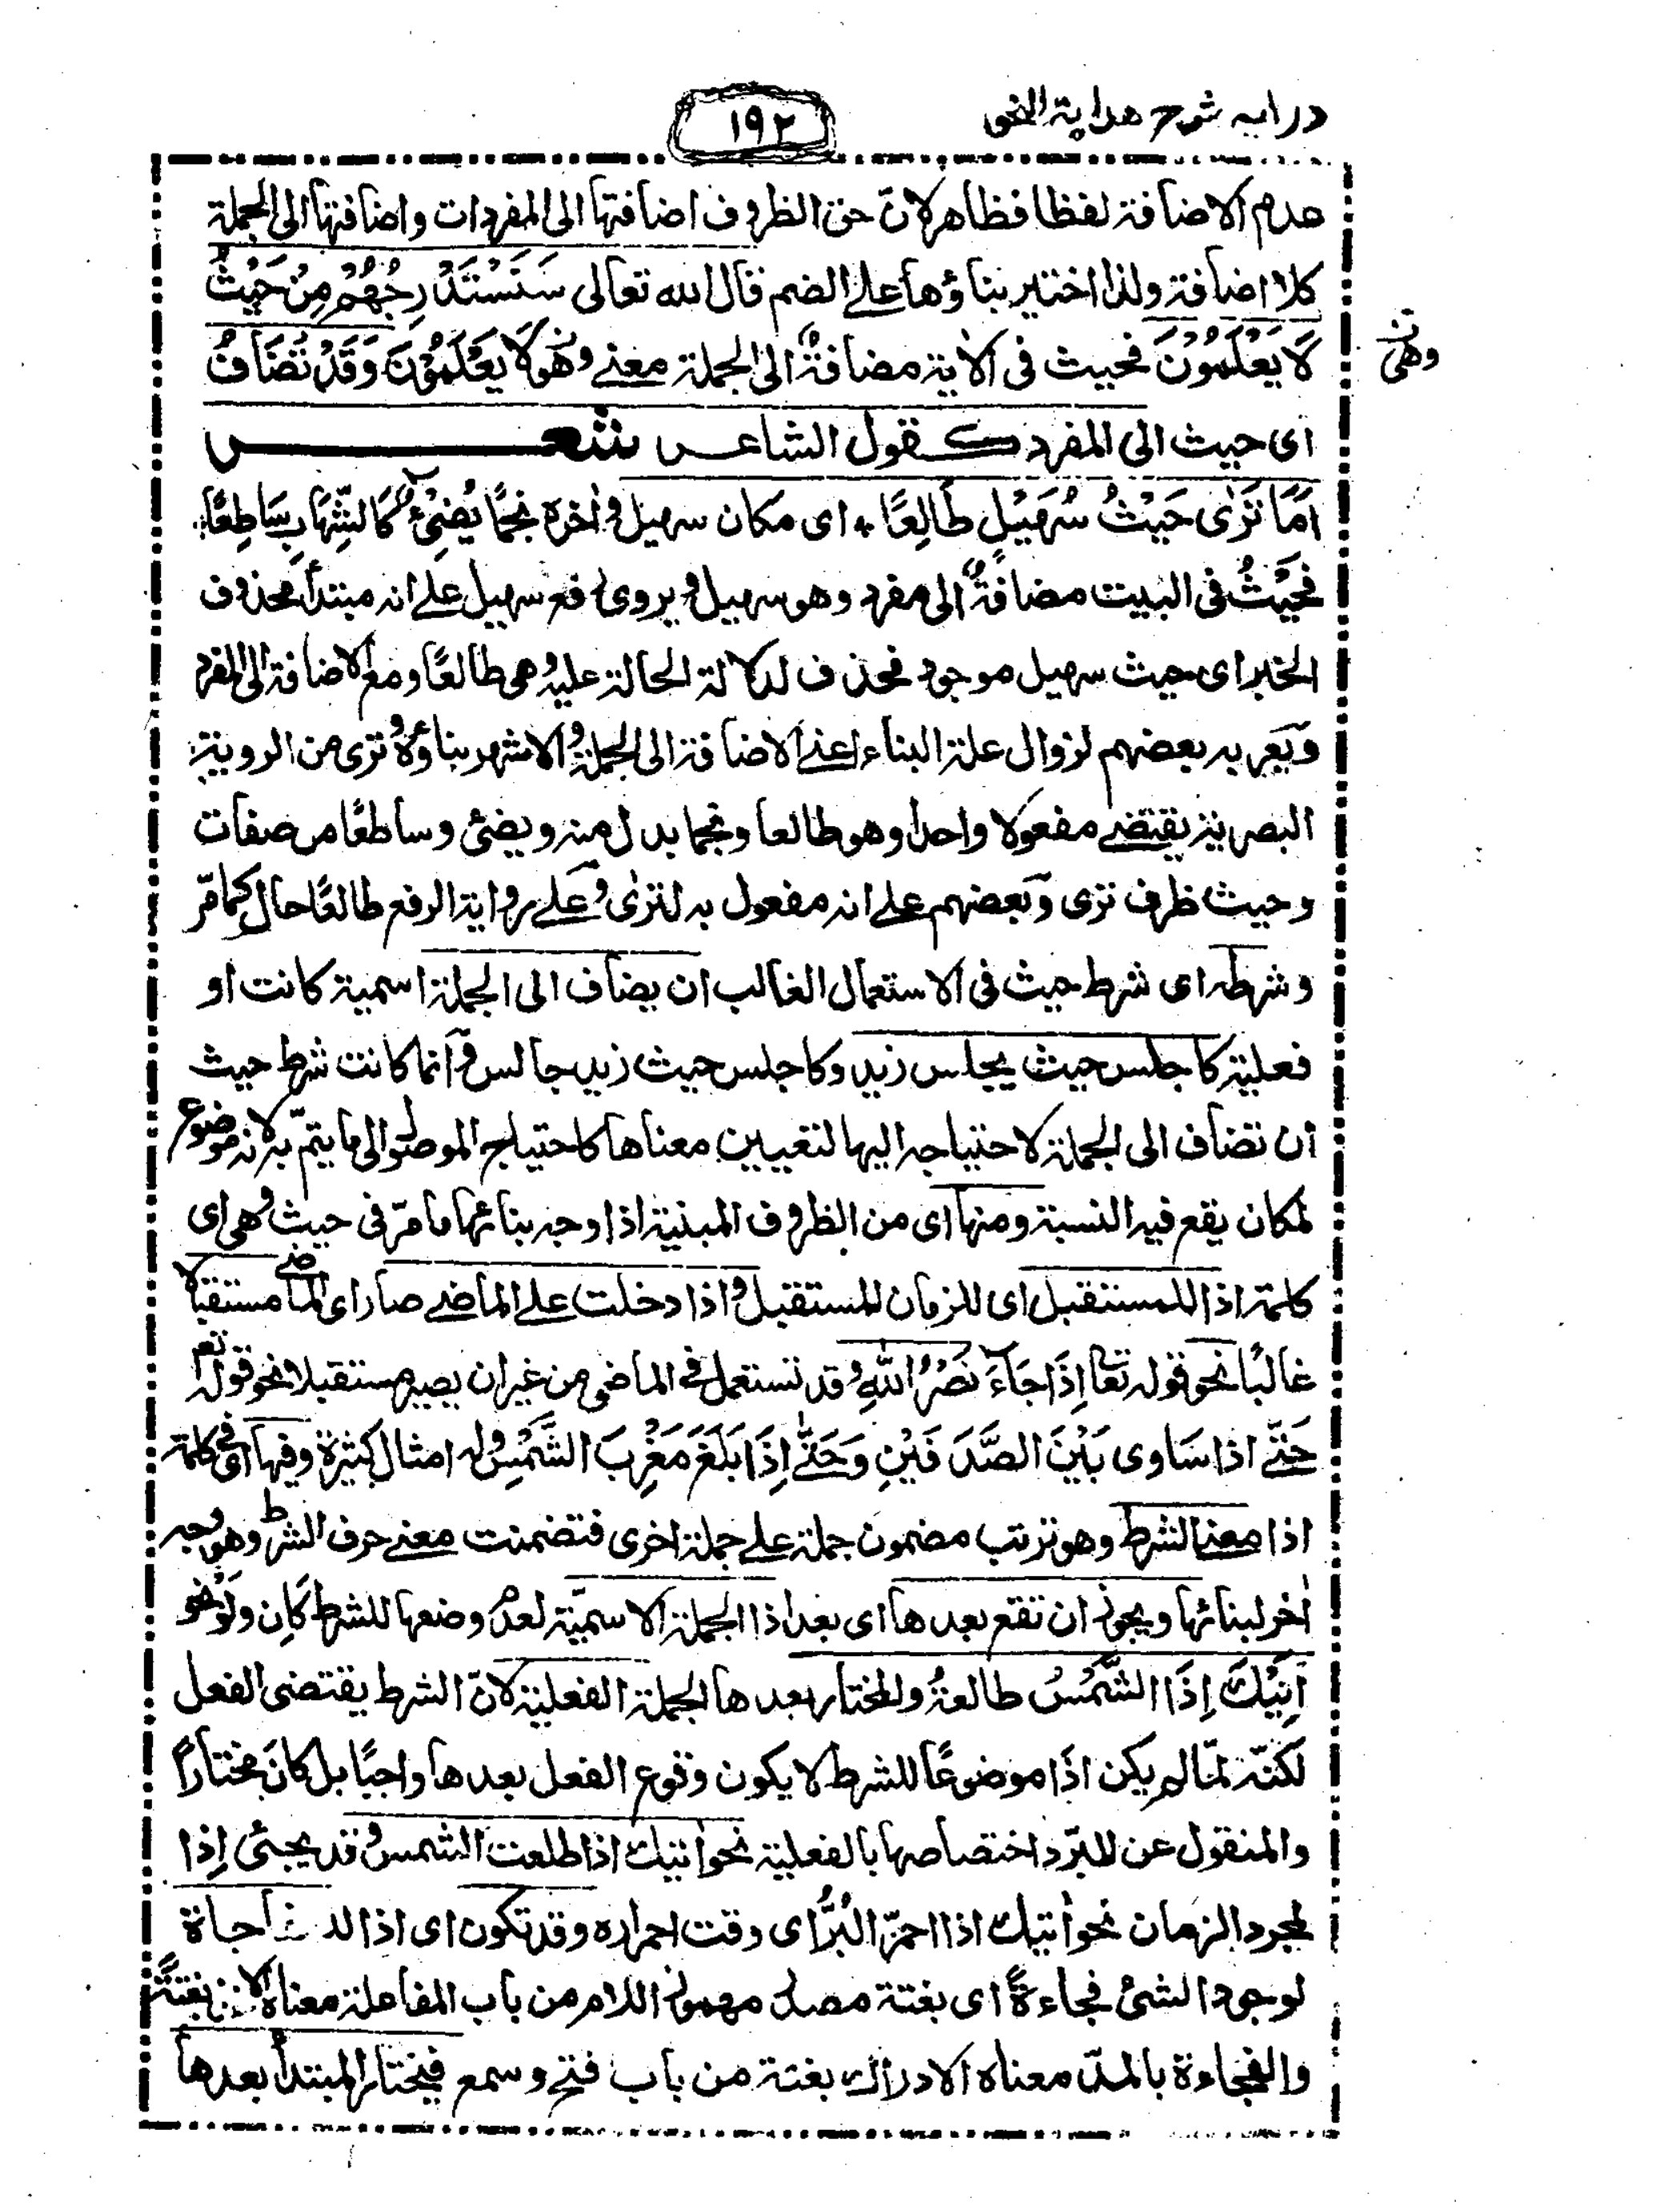 درايه شرح هداية النحو
١٩٢
عدم الاضافة لفظا فظاهر لانّ حق الظروف اضافتها الى المفردات واضافتها الى الجملة
كلا اضافة ولذا اختير بناؤها على الضم قال الله تعالى سَنَسْتَدْرِجُهُمْ مِنْ حَيْثُ
لَا يَعْلَمُوْنَ فحيث فى الاية مضافة الى الجملة معنے وهو لَا يَعْلَمُوْنَ وَقَدْ تُضَافُ
وهى
اى حيث الى المفرد كقول الشاعر شعر
اَمَا تَرٰى حَيْثُ سُهَيْلٍ طَالِعًا ٭ اى مكان سهيل واٰخره نَجْمًا يُضِىْئُ كَالشِّهَابِ سَاطِعًا
فحَيْثُ فى البيت مضافةٌ الى مفرد وهو سهيل ويروى رفع سهيل على انه مبتدأ محذوف
الخبر اى حيث سهيل موجود فحذف لدلالة الحالة عليه وهى طالعًا ومع الاضافة الى المفرد
ويعربه بعضهم لزوال علة البناء اعنے الاضافة الى الجملة والاشهر بناؤه وترى من الروية
البصرية يقتضے مفعولا واحدا وهو طالعا ونجما بدل منه ويضئ وساطعًا من صفات
وحيث ظرف ترى وبعضهم على انه مفعول به لترٰى وعلے رواية الرفع طالعًا حال كما مرّ
وشرطه اى شرط حيث فى الاستعمال الغالب ان يضاف الى الجملة اسمية كانت او
فعلية كاجلس حيث يجلس زيد وكاجلس حيث زيد جالس وانما كانت شرط حيث
ان تضاف الى الجملة لاحتياجه اليها لتعيين معناها كاحتياج الموصول الى ما يتمّ به لانه موضوع
لمكان يقع فيه النسبة ومنها اى من الظروف المبنية اذا وجه بنائها ما مرّ فى حيث وهى اى
كلمة اذا للمستقبل اى للزمان المستقبل واذا دخلت علے الماضے صار اى الماضے مستقبلا
غالبًا نحو قوله تعا اِذَا جَاءَ نَصْرُ اللّٰهِ وقد تستعمل فى الماضى من غير ان يصير مستقبلا نحو قوله تعم
حَتّٰے اذا سَاوى بَيْنَ الصَّدَفَيْنِ وَحَتّٰے اِذَا بَلَغَ مَغْرِبَ الشَّمْسِ وله امثال كثيرة وفيها اى فى كلمة
اذا معنے الشرط وهو ترتب مضمون جملة علے جملة اخرى فتضمنت معنے حرف الشرط وهو وجه
اٰخر لبنائها ويجوز ان تقع بعدها اى بعد اذا الجملة الاسميّة لعدم وضعها للشرط كَاِن ولَوْ نحو
اٰتِيْكَ اِذَا الشَّمْسُ طالعةٌ والمختار بعدها الجملة الفعلية لانّ الشرط يقتضى الفعل
لكنّه لمّا لم يكن اذَا موضوعًا للشرط لا يكون وقوع الفعل بعدها واجبًا بل كانَ مختاراً
والمنقول عن المبرّد اختصاصها بالفعلية نحو اٰتيك اذا طلعت الشمس وقد يجيئ اِذا
لمجرد الزمان نحو اٰتيك اذا احمرّ البُرُّ اى وقت احمراره وقد تكون اى اذا للمفاجاة
لوجود الشئ فجاءةً اى بغتة مصدر مهموز اللام من باب المفاعلة معناه بغتةً
والفجاءة بالمدّ معناه الادراك بغتة من باب فتح وسمع فيختار المبتدأ بعدها